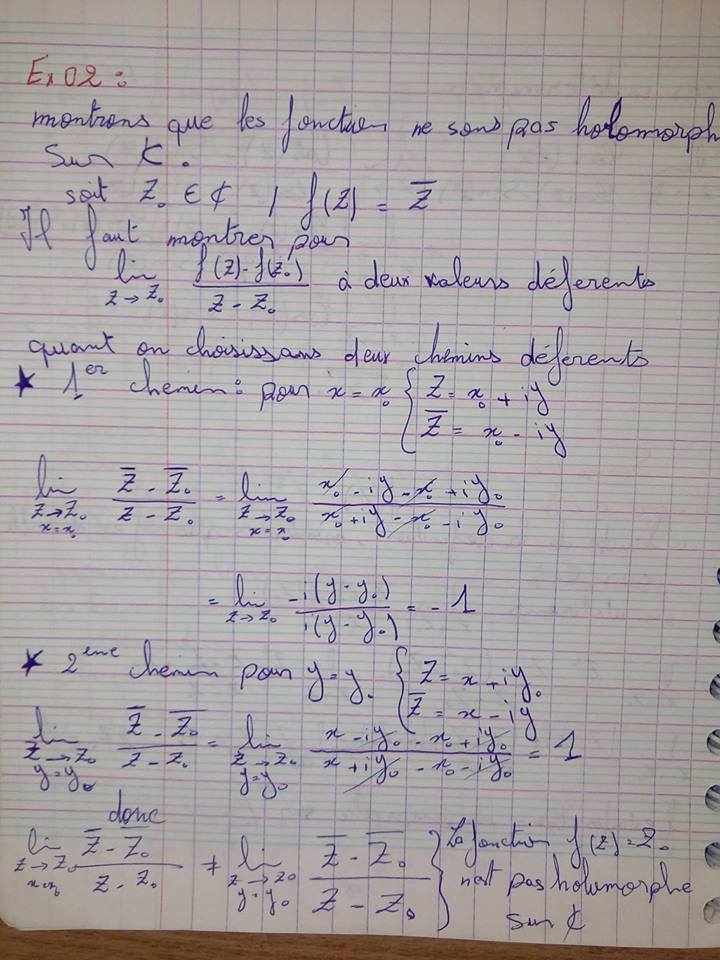 Ex 02 :
montrons que les fonction ne sons pas holomorph
Sur ℂ .
soit Z₀ ∈ ℂ / f(Z) = Z̅
Il faut montrer pour
lim_{Z→Z₀} (f(Z)-f(Z₀))/(Z - Z₀) à deux valeurs déferents
quant on choisissans deux chemins déferents
★ 1er chemin : pour x = x₀ { Z = x₀ + iy
Z̅ = x₀ - iy
lim_{Z→Z₀, x=x₀} (Z̅ - Z̅₀)/(Z - Z₀) = lim_{Z→Z₀, x=x₀} (x₀ - iy - x₀ + iy₀)/(x₀ + iy - x₀ - iy₀)
= lim_{Z→Z₀} -i(y - y₀)/i(y - y₀) = - 1
★ 2eme chemin pour y = y₀ { Z = x + iy₀
Z̅ = x - iy
lim_{Z→Z₀, y=y₀} (Z̅ - Z̅₀)/(Z - Z₀) = lim_{Z→Z₀, y=y₀} (x - iy₀ - x₀ + iy₀)/(x + iy₀ - x₀ - iy₀) = 1
donc
lim_{Z→Z₀, x=x₀} (Z̅ - Z̅₀)/(Z - Z₀) ≠ lim_{Z→Z₀, y=y₀} (Z̅ - Z̅₀)/(Z - Z₀) } La fonction f(Z) =
nest pas holomorphe
sur ℂ